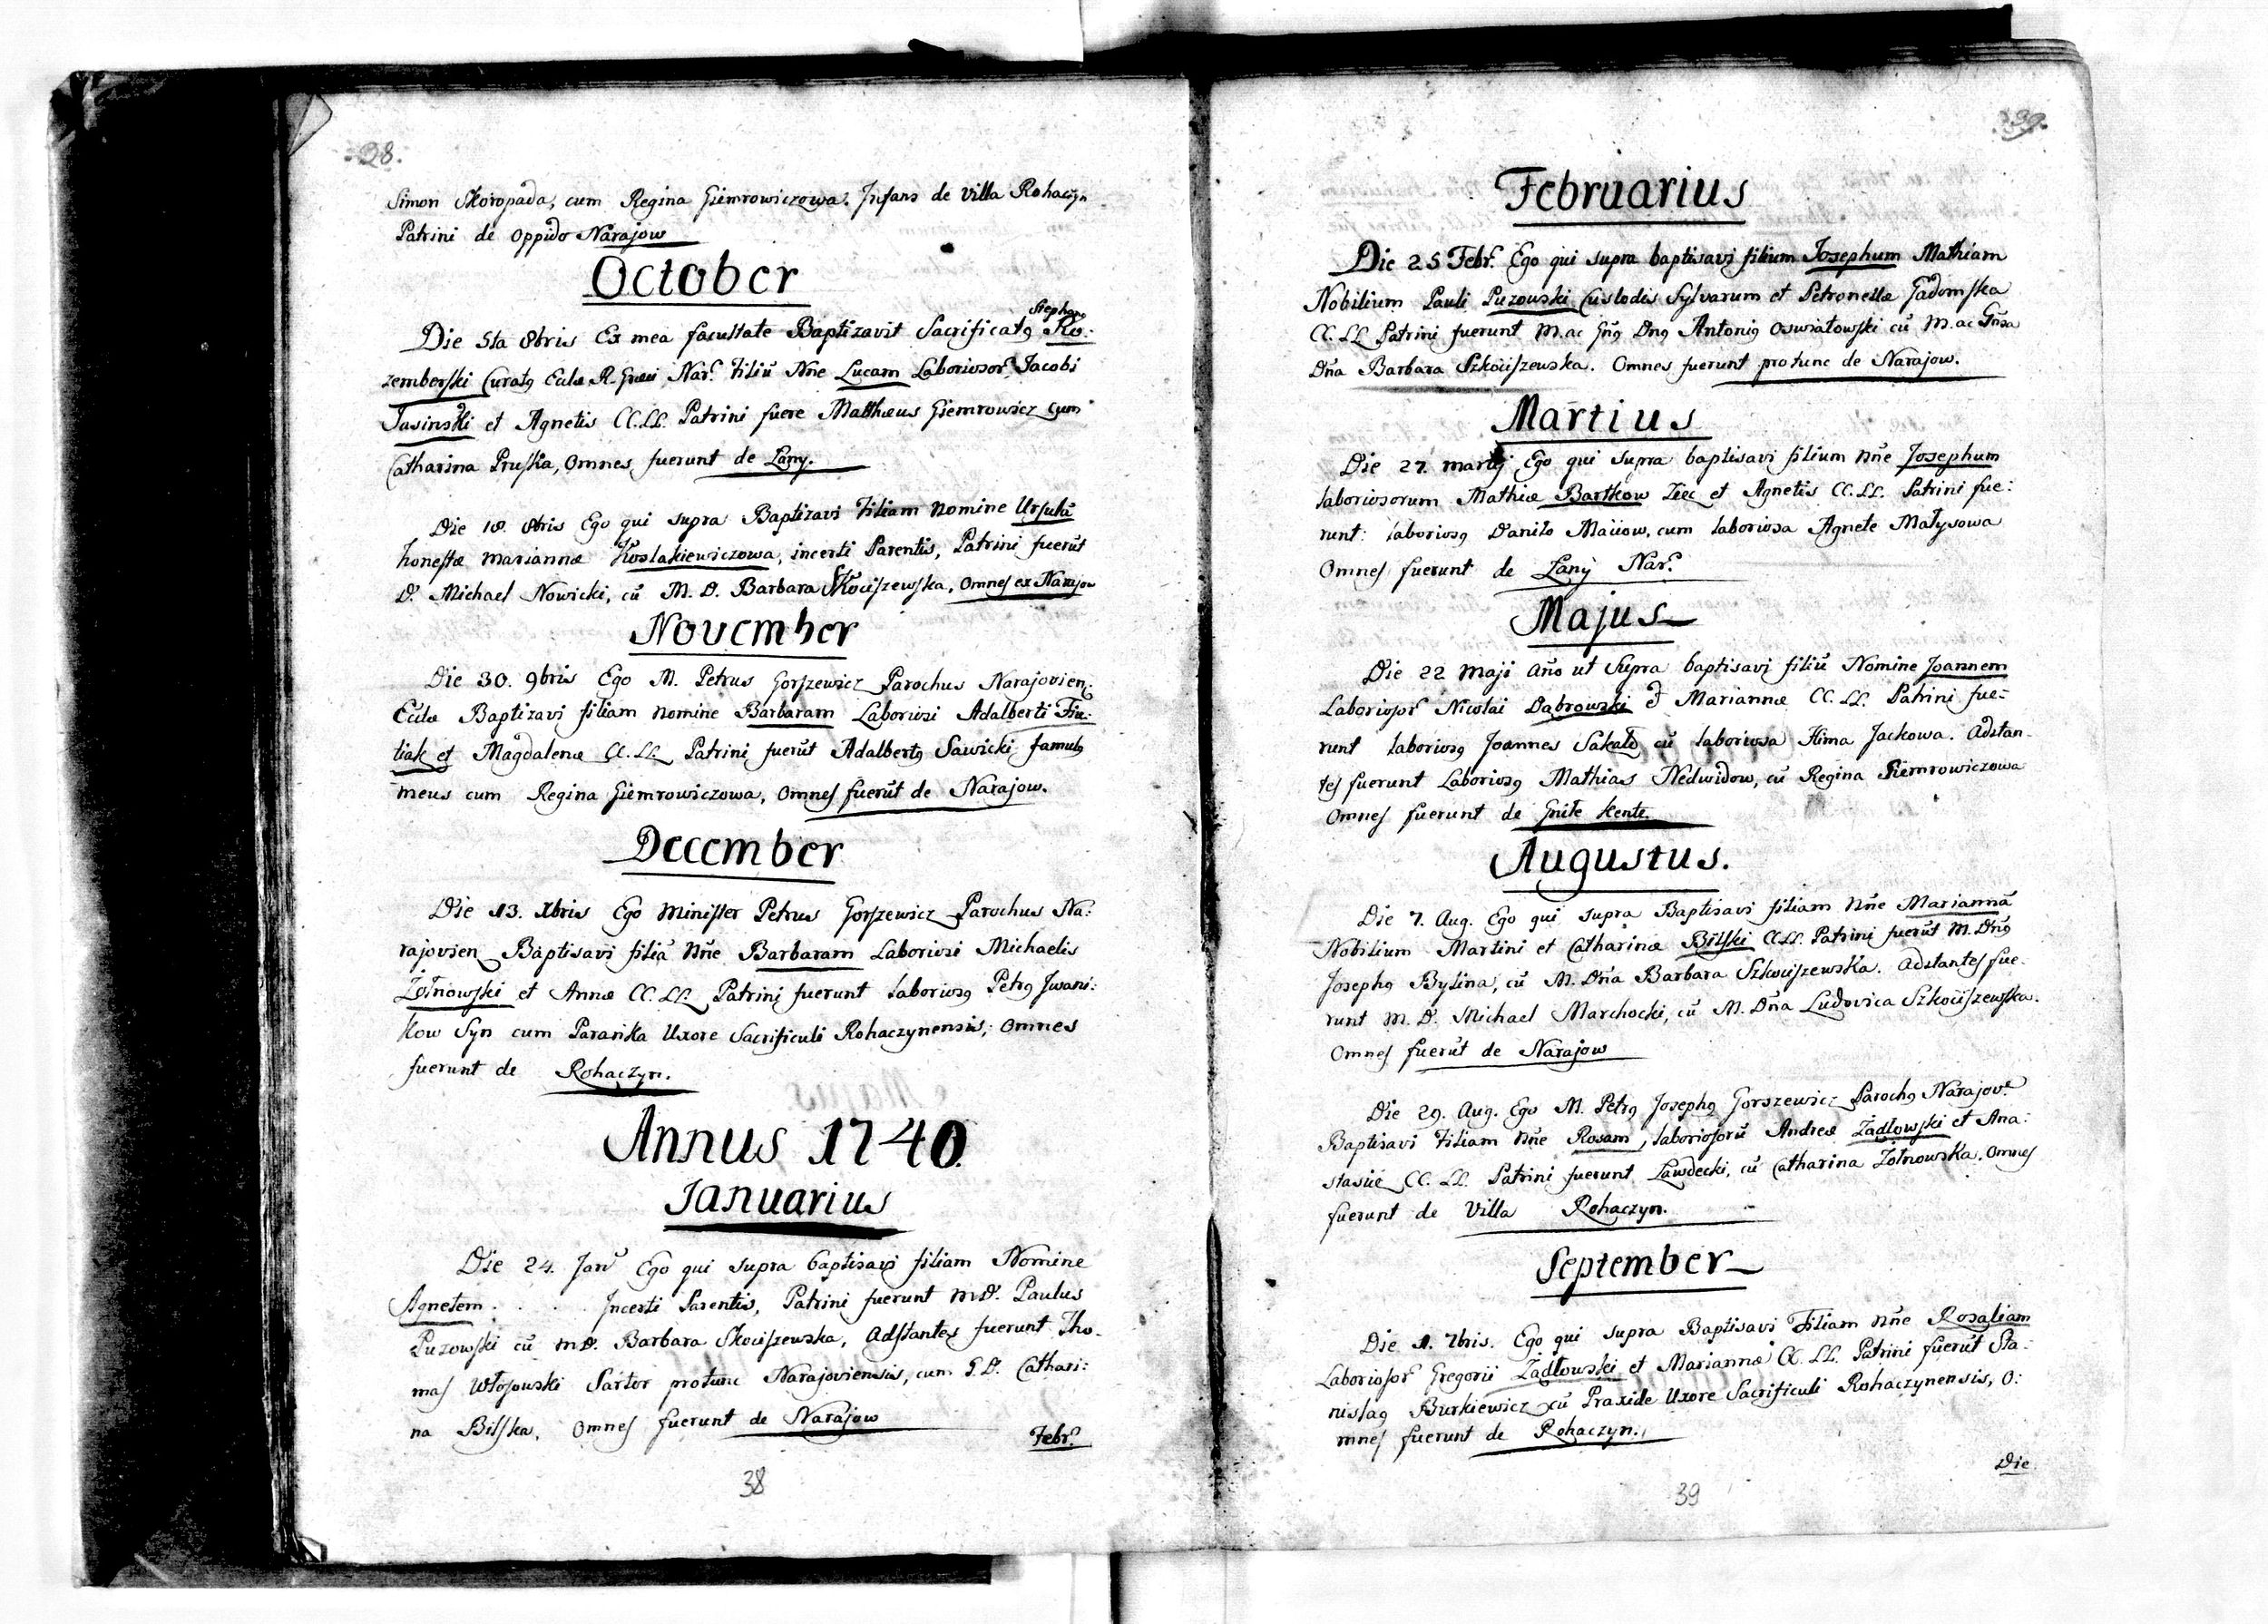 38.
Simon Skoropada, cum Regina Giemrowiczowa. Infans de Villa Rohaczyn
Patrini de Oppido Narajow
October
Stephang
Die 5ta 8bris Ex mea facultate Baptizavit Sacrificatg Ro:
zemberski Curatg Eccla R. Graeci Nar. Filiū Nne Lucam Laboriosor Jacobi
Jasinski et Agnetis CC.LL. Patrini fuere Matthaeus Giemrowicz cum
Catharina Pruska, Omnes fuerunt de Łany.
Die 18. 8bris Ego qui supra Baptizavi Filiam Nomine Ursulā
honestae Mariannae Koslakiewiczowa, incerti Parentis, Patrini fuerūt
D. Michael Nowicki, cū M. D. Barbara Skociszewska, Omnes ex Narajow
November
Die 30. 9bris Ego M. Petrus Gorszewicz Parochus Narajovien:
Ecclae Baptizavi filiam nomine Barbaram Laboriosi Adalberti Fiu:
tiak et Magdalenae CC.LL. Patrini fuerūt Adalbertg Sawicki famulg
meus cum Regina Giemrowiczowa, Omnes fuerūt de Narajow.
December
Die 13. Xbris Ego Minister Petrus Gorszewicz Parochus Na:
rajovien Baptisavi filiā Nne Barbaram Laboriosi Michaelis
Żołnowski et Annae CC.LL. Patrini fuerunt Laboriosg Petrg Iwani:
kow Syn cum Parańka Uxore Sacrificuli Rohaczynensis, Omnes
fuerunt de Rohaczyn.
Annus 1740.
Januarius
Die 24. Jan Ego qui supra baptisavi filiam Nomine
Agnetem . . . . Incerti Parentis, Patrini fuerunt M D. Paulus
Puzowski cū M D. Barbara Skociszewska, Adstantes fuerunt Tho-
mas Włosowski Sartor protunc Narajoviensis, cum G. D. Cathari:
na Bilska, Omnes fuerunt de Narajow
Febr.
38
39.
Februarius
Die 25 Febr. Ego qui supra baptisavi filium Josephum Mathiam
Nobilium Pauli Puzowski Custodis Sylvarum et Petronellae Gadomska
CC.LL Patrini fuerunt M. ac Gng Dng Antonig Oswiatowski cū M. ac Gnsa
Dna Barbara Szkociszewska. Omnes fuerunt protunc de Narajow.
Martius
Die 27. martij Ego qui supra baptisavi filium Nne Josephum
Laboriosorum Mathiae Bartkow Ziec et Agnetis CC.LL. Patrini fue:
runt: laboriosg Daniło Maiiow, cum laboriosa Agnete Małysowa
Omnes fuerunt de Łany Nar.
Majus
Die 22 Maji Ano ut Supra baptisavi filiū Nomine Joannem
Laboriosor Nicolai Dąbrowski & Mariannae CC.LL. Patrini fue=
runt laboriosg Joannes Sakało cū laboriosa Hima Jackowa. Adstan-
tes fuerunt Laboriosg Mathias Nedwidow, cū Regina Giemrowiczowa
Omnes fuerunt de Gniłe
Augustus.
Die 7. Aug. Ego qui supra Baptisavi filiam Nne Mariannā
Nobilium Martini et Catharinae Bilski CC.LL. Patrini fuerūt M. Dng
Josephg Bylina, cū M. Dna Barbara Szkociszewska. Adstantes fue-
runt M. D. Michael Marchocki, cū M. Dna Ludovica Szkociszewska.
Omnes fuerūt de Narajow
Die 29. Aug. Ego M. Petrg Josephg Gorszewicz Parochg Narajov.
Baptisavi Filiam Nne Rosam, laboriosorū Andreae Żądłowski et Ana:
stasiae CC.LL. Patrini fuerunt Lawdecki, cū Catharina Żołnowska. Omnes
fuerunt de Villa Rohaczyn.
September
Die 1. 7bris. Ego qui supra Baptisavi Filiam Nne Rosaliam
Laboriosor Gregorii Żądłowski et Mariannae CC.LL. Patrini fuerūt Sta:
nislag Burkiewicz cū Praxide Uxore Sacrificuli Rohaczynensis, O:
mnes fuerunt de Rohaczyn.
Die
39